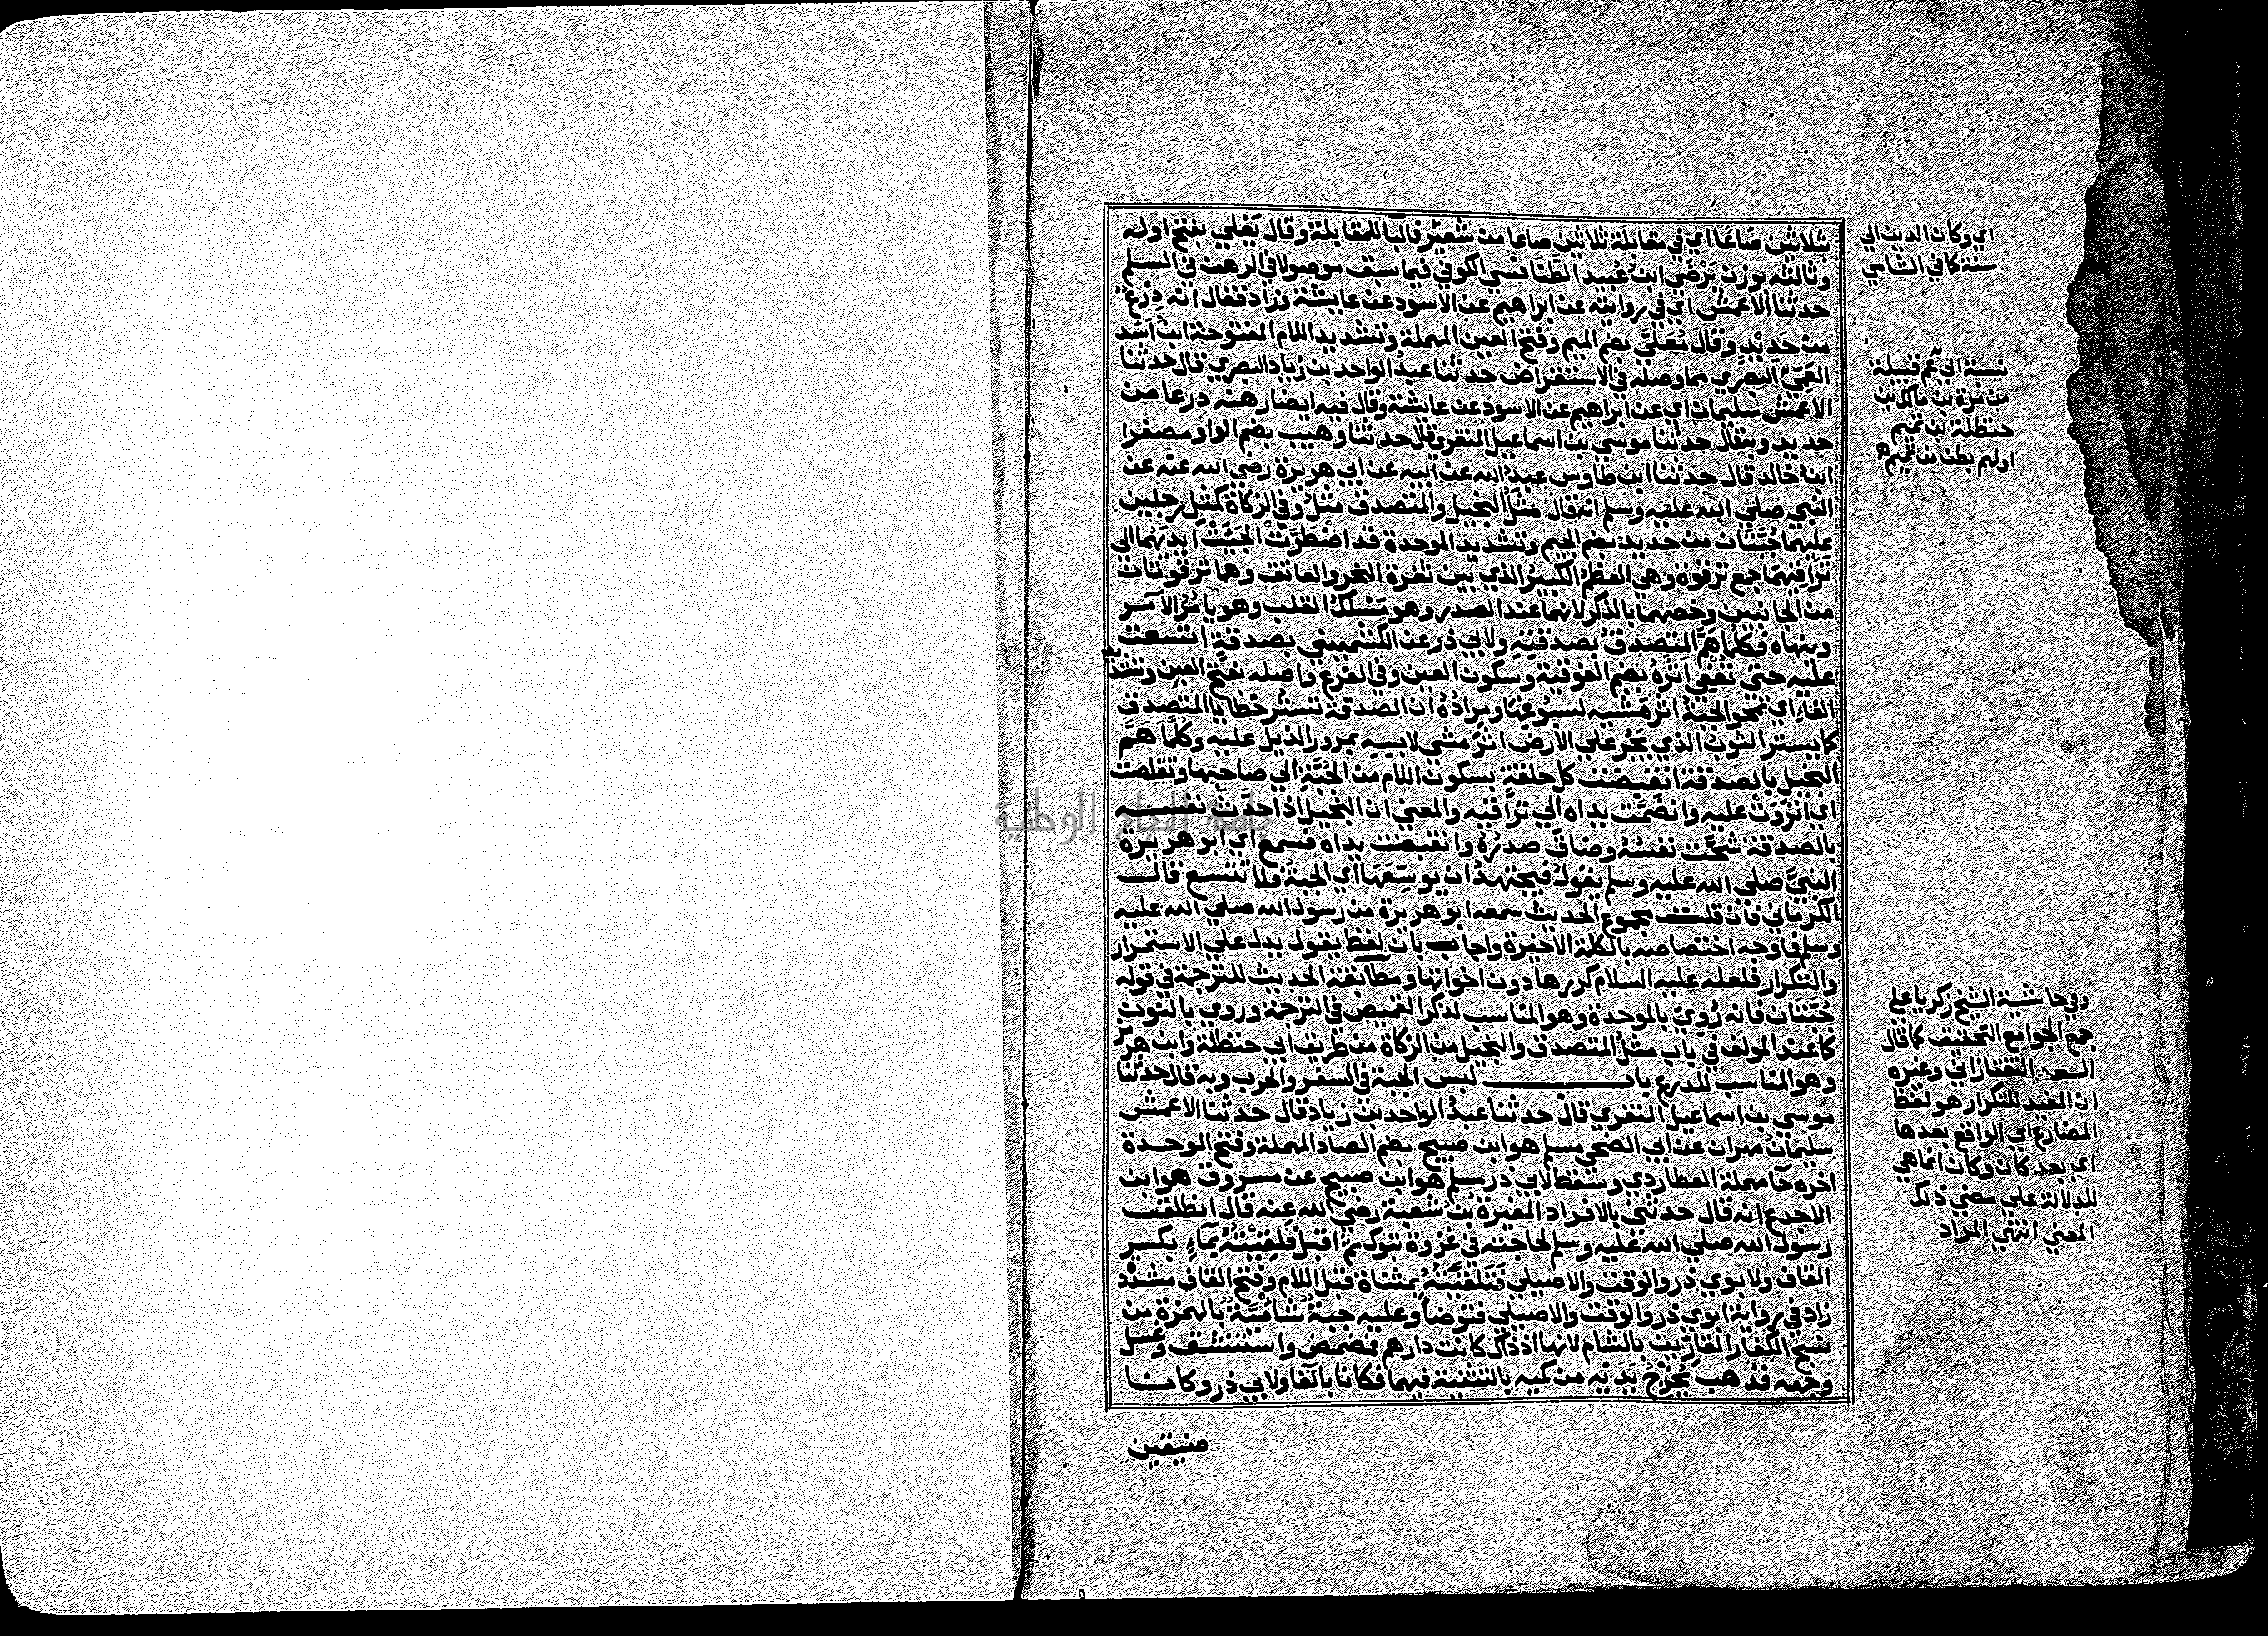 بثلاثين صَاعًا اي في مقابلة ثلاثين صاعا من شعير فالبا للمقابلة وقال يَعْلي بفتح اوله
وثالثه بوزن يَرْضَي ابنُ عُبيد الطَّنَافسي الكوفي فيما سبق موصولا في الرهن في السلم
حدثنا الاعمش اي في روايته عن ابراهيم عن الاسود عن عايشة وزاد فقال انه دِرْعٌ
من حَدِيْدٍ وقال مُعَلَّي بضم الميم وفتح العين المهملة وتشديد اللام المفتوحة ابن اسد
العَمِّيُّ البصري مما وصله في الاستقراض حدثنا عبدُ الواحد بن زياد البصري قال حدثنا
الاعمش سليمان اي عن ابراهيم عن الاسود عن عايشة وقال فيه ايضا رهنه درعا من
حديد وبه قال حدثنا موسي بن اسماعيل المنقري قال حدثنا وهيب بضم الواو مصغرا
ابنُ خالد قال حدثنا ابن طاوس عبدُ الله عن ابيه عن ابي هريرة رضي الله عنه عن
النبي صلي الله عليه وسلم انه قال مَثَلُ البخيل والمتصدق مثلُ وفي الزكاة كمثل رجلين
عليهما جُبَّتان من حديد بضم الجيم وتشديد الموحدة قد اضْطَرَّت الجبَّتْ ايديَهُما الي
تَرَاقيهما جمع ترقوة وهي العظمُ الكبيرُ الذي بين ثغرة النحر والعاتق وهما ترقوتان
من الجانبين وخصهما بالذكر لانهما عند الصدر وهو مَسْلَكُ القلب وهو يامُرُ الآمر
وينهاه فكلما هَمَّ المتصدقُ بصدقَتِهِ ولابي ذر عن الكشميهني بصدقةٍ اتسعت
عليه حتي تُعْفِي اثرَهُ بضم الفوقية وسكون العين وفي الفرع واصله بفتح العين وتشديد
الفاءِ اي تمحو الجبَّةُ اثرَ مَشْيِه لسبُوغها ومرادُهُ ان الصدقة تستُرُ خطايا المتصدق
كما يستر الثوبُ الذي يَجُرُّ علي الارض اثرَ مشي لابسِهِ بمرور الذيل عليه وكُلَّمَا هَمَّ
البخيل بالصدقة انقبضت كل حلقةٍ بسكون اللام من الجُبَّةِ الي صاحبها وتقلصت
اي انْزَوَتْ عليه وانضَمَّت يداه الي تراقيه والمعني ان البخيل اذا حدَّث نفسه
بالصدقة شحَّت نفسُهُ وضاق صدرُهُ وانقبضت يداه فسمع اي ابو هريرة
النبيَّ صلي الله عليه وسلم يقولُ فيجتهدُ ان يوسِّعَهَا اي الجبةَ فلا تتسع قال
الكرماني فان قلت مجموع الحديث سمعه ابو هريرة من رسول الله صلي الله عليه
وسلم فما وجه اختصاصه بالكلمة الاخيرة واجاب بان لفظ يقول يدل علي الاستمرار
والتكرار فلعله عليه السلام كررها دون اخواتها ومطابقة الحديث للترجمة في قوله
جُبَّتان فانه رُوِيَ بالموحدة وهو المناسب لذكر القميص في الترجمة وروي بالنون
كما عند المولف في باب مثلُ المتصدق والبخيل من الزكاة من طريق ابي حنظلة وابن هرمز
وهو المناسب للدرع باب لبس الجبة في السفر والحرب وبه قال حدثنا
موسي بن اسماعيل المنقري قال حدثنا عبدُ الواحد بن زياد قال حدثنا الاعمش
سليمانُ مهران عن ابي الضحي مسلم هو ابن صبيح بضم الصاد المهملة وفتح الموحدة
اخره حآ مهملة العطاردي وسقط لابي ذر مسلم هو ابن صبيح عن مسروق هو ابن
الاجدع انه قال حدثني بالافراد المغيرة بنُ شعبة رضي الله عنه قال انطلقت
رسولُ الله صلي الله عليه وسلم لحاجته في غزوة تبوك ثم اقبلَ فلقِيْتُهُ بمآءٍ بكسر
القاف ولابوي ذر والوقت والاصيلي فَتَلَقَّيْتُهُ بمثناة قبل اللام وفتح القاف مشددة
زاد في رواية ابوي ذر والوقت والاصيلي فتوضأ وعليه جبةٌ شَامِيَّةٌ بالهمزة من
نسج الكفار القارّين بالشام لانها اذ ذاك كانت دارهم فمضمض واستنشق وغسل
وجهه فذهب يُخْرِجُ يَدَيْهِ من كميه بالتثنية فيهما فكانا بالفآ ولابي ذر وكانا
ضيقين
اي وكان الدين الي
سنة كما في الشامي
نسبة الي عَم قبيلة
من مرة بن مالك بن
حنظلة بن تميم
اولهم بطن من تميم ه
وفي حاشية الشيخ زكريا علي
جمع الجوامع التحقيق كما قال
السعد التفتازاني وغيره
ان المفيد للتكرار هو لفظ
المضارع اي الواقع بعدها
اي بعد كان وكان انما هي
للدلالة علي مضي ذلك
المعني انتهي المراد
جامعة النجاح الوطنية